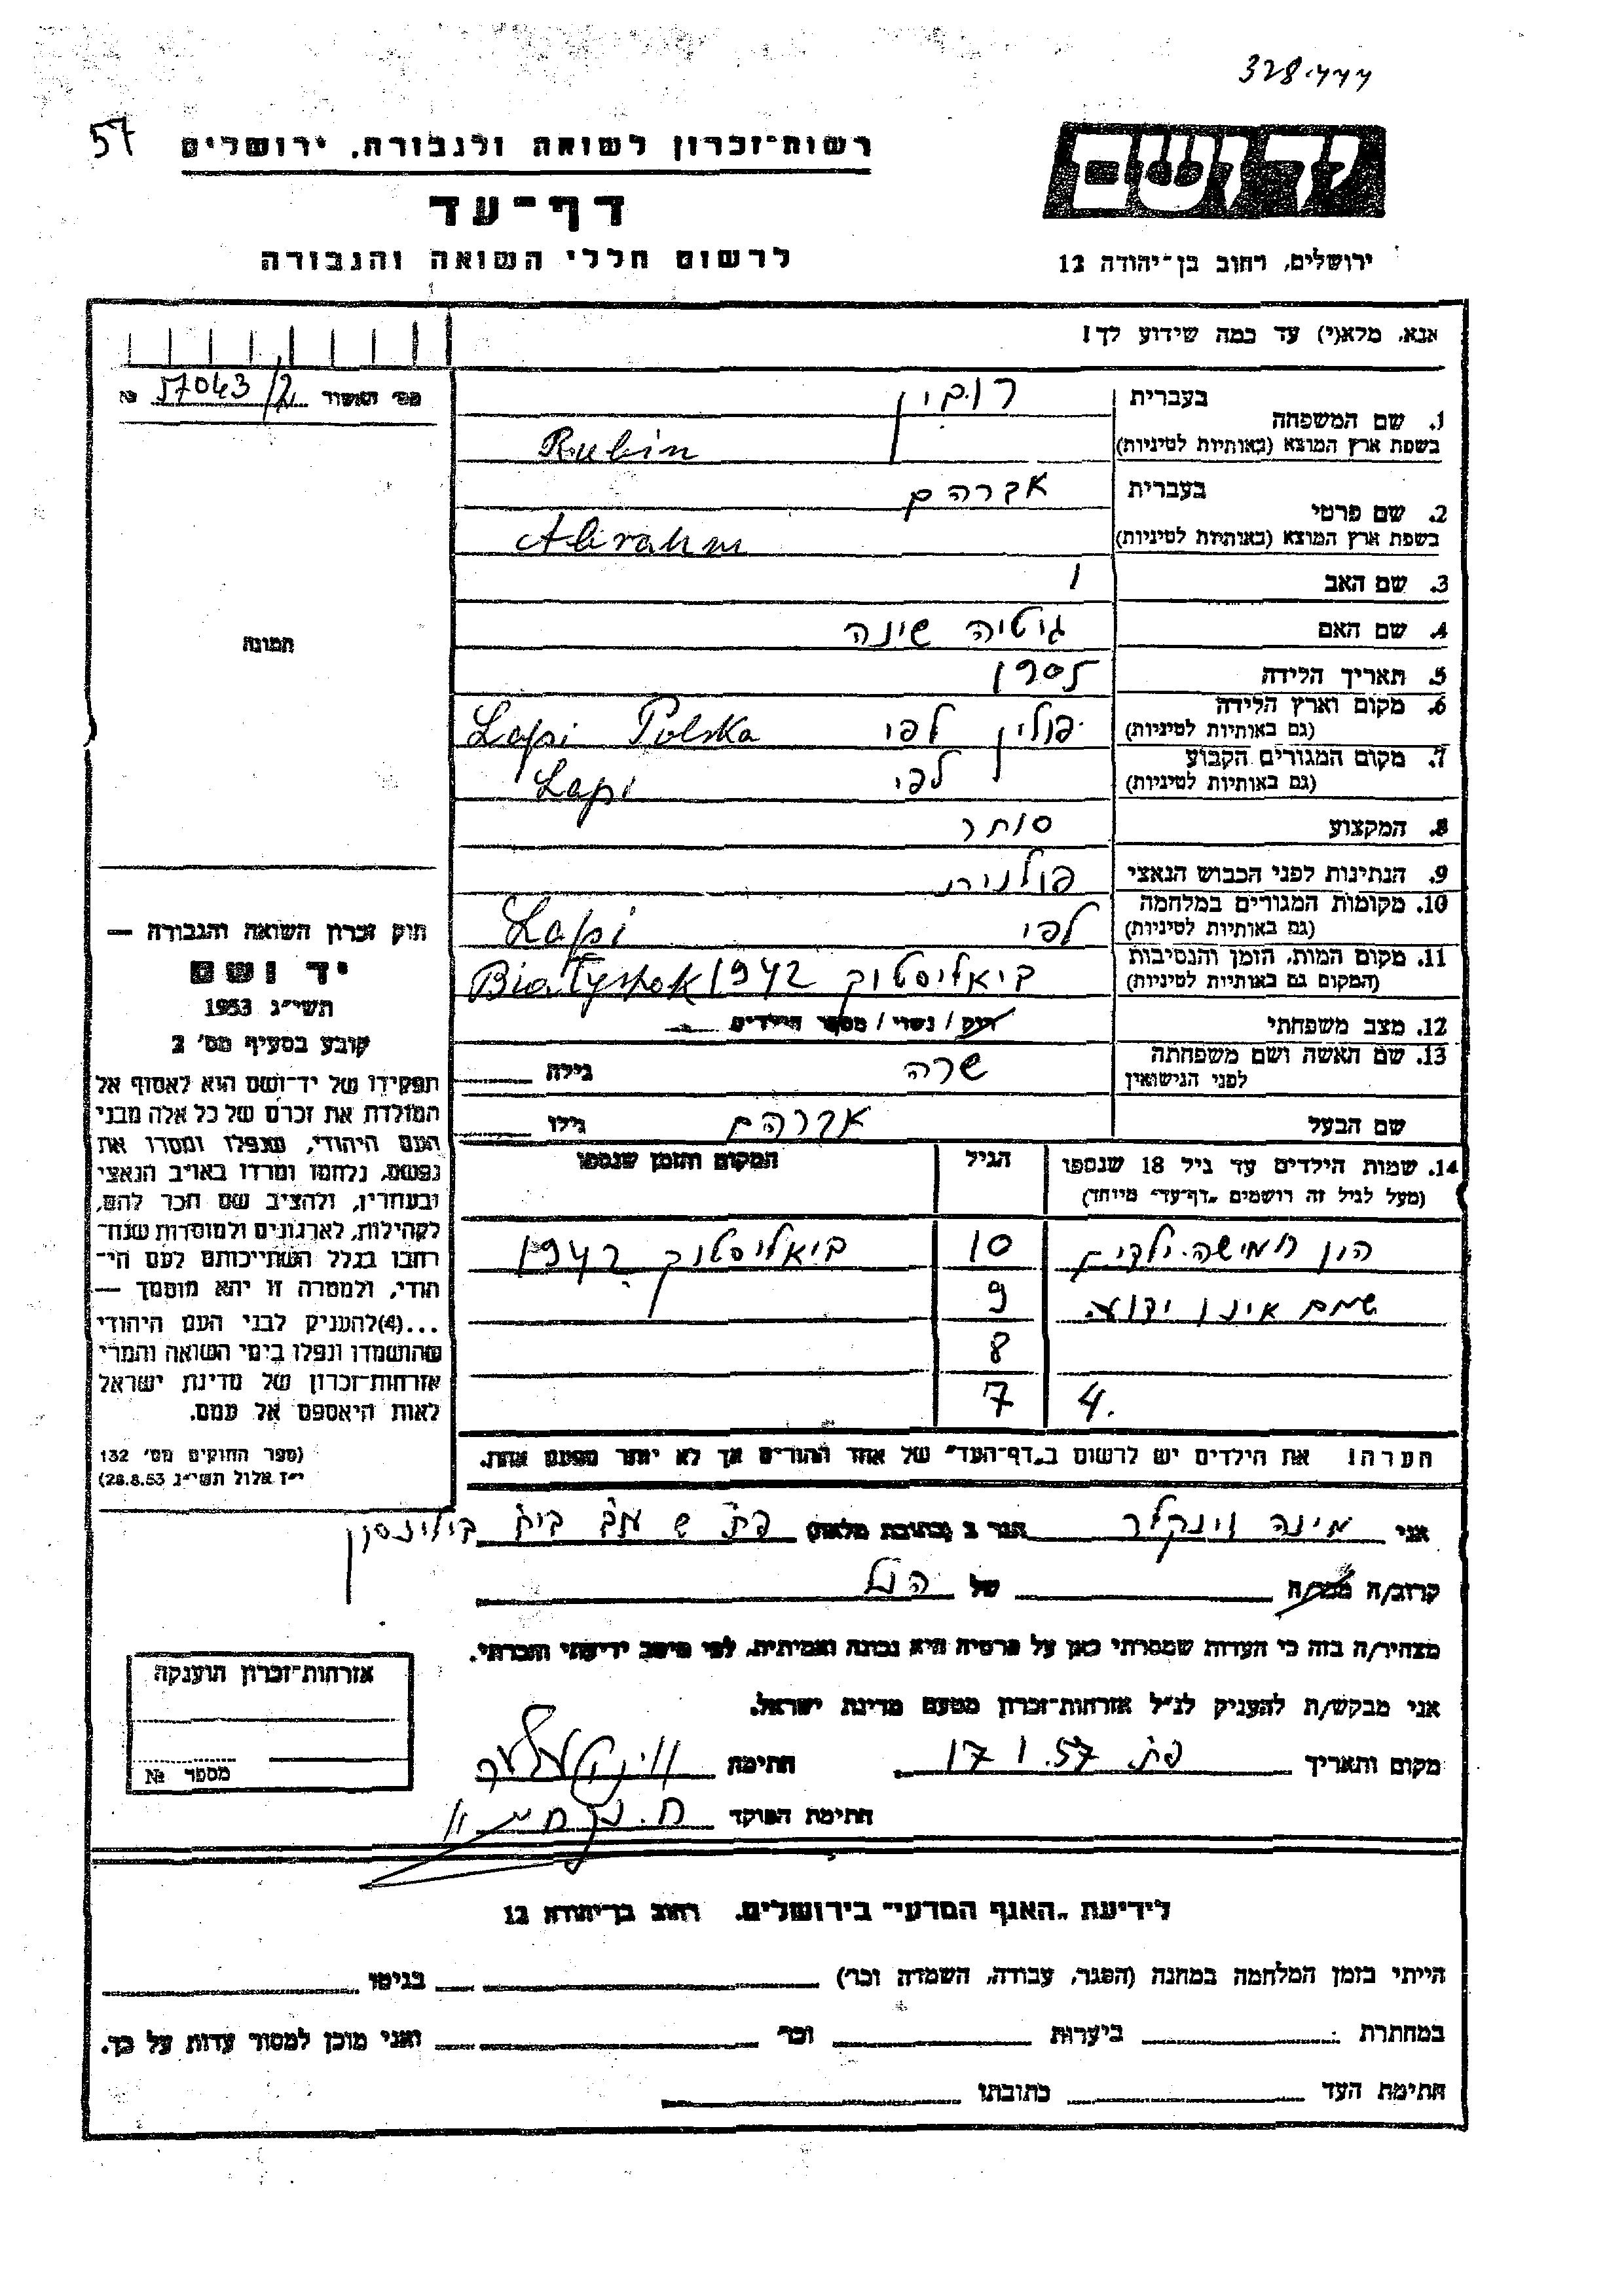 328.444
57
רשות־זכרון לשואה ולגבורה, ירושלים
יד ושם
דף־עד
לרשום חללי השואה והגבורה
ירושלים, רחוב בן־יהודה 12
אנא, מלא(י) עד כמה שידוע לך!
57043/2 №
1. שם המשפחה
בעברית רובין
בשפת ארץ המוצא (באותיות לטיניות) Rubin
2. שם פרטי
בעברית אברהם
בשפת ארץ המוצא (באותיות לטיניות) Abrahm
3. שם האב
4. שם האם גוטיה שינה
5. תאריך הלידה
6. מקום וארץ הלידה
(גם באותיות לטיניות) פולין לפי Lapi Polska
7. מקום המגורים הקבוע
(גם באותיות לטיניות) לפי Lapi
8. המקצוע סוחר
9. הנתינות לפני הכבוש הנאצי פולנית
10. מקומות המגורים במלחמה
(גם באותיות לטיניות) לפי Lapi
11. מקום המות, הזמן והנסיבות
(המקום גם באותיות לטיניות) ביאליסטוק 1942 Białystok
12. מצב משפחתי רווק / נשוי / מספר הילדים
13. שם האשה ושם משפחתה
לפני הנישואין שרה גילה
שם הבעל אברהם גילו
14. שמות הילדים עד גיל 18 שנספו
(מעל לגיל זה רושמים „דף־עד” מיוחד)
הגיל
המקום והזמן שנספו
היו חמישה ילדים 10 ביאליסטוק 1942
שמם אינו ידוע. 9
8
4. 7
הערה! את הילדים יש לרשום ב„דף־העד” של אחד ההורים אך לא יותר מפעם אחת.
תמונה
חוק זכרון השואה והגבורה —
יד ושם
תשי״ג 1953
קובע בסעיף מס׳ 2
תפקידו של יד־ושם הוא לאסוף אל
המולדת את זכרם של כל אלה מבני
העם היהודי, שנפלו ומסרו את
נפשם, נלחמו ומרדו באויב הנאצי
ובעוזריו, ולהציב שם וזכר להם,
לקהילות, לארגונים ולמוסדות שנח־
רבו בגלל השתייכותם לעם הי־
הודי, ולמטרה זו יהא מוסמך —
...(4)להעניק לבני העם היהודי
שהושמדו ונפלו בימי השואה והמרי
אזרחות־זכרון של מדינת ישראל
לאות היאספם אל עמם.
(ספר החוקים מס׳ 132
י״ז אלול תשי״ג 28.8.53)
אני מינה וינקלר הגר ב (כתובת מלאה) פת ביח בילינסון
קרוב/ה מכר/ה של הנ״ל
מצהיר/ה בזה כי העדות שמסרתי כאן על פרטיה היא נכונה ואמיתית, לפי מיטב ידיעתי והכרתי.
אני מבקש/ת להעניק לנ״ל אזרחות־זכרון מטעם מדינת ישראל.
מקום ותאריך פת. 17.1.57 חתימה וינקלר
חתימת הפוקד
אזרחות־זכרון הוענקה
מספר №
לידיעת „האגף המדעי” בירושלים. רחוב בן־יהודה 12
הייתי בזמן המלחמה במחנה (הסגר, עבודה, השמדה וכו׳) בגיטו
במחתרת ביערות וכו׳ ואני מוכן למסור עדות על כך.
חתימת העד כתובתו